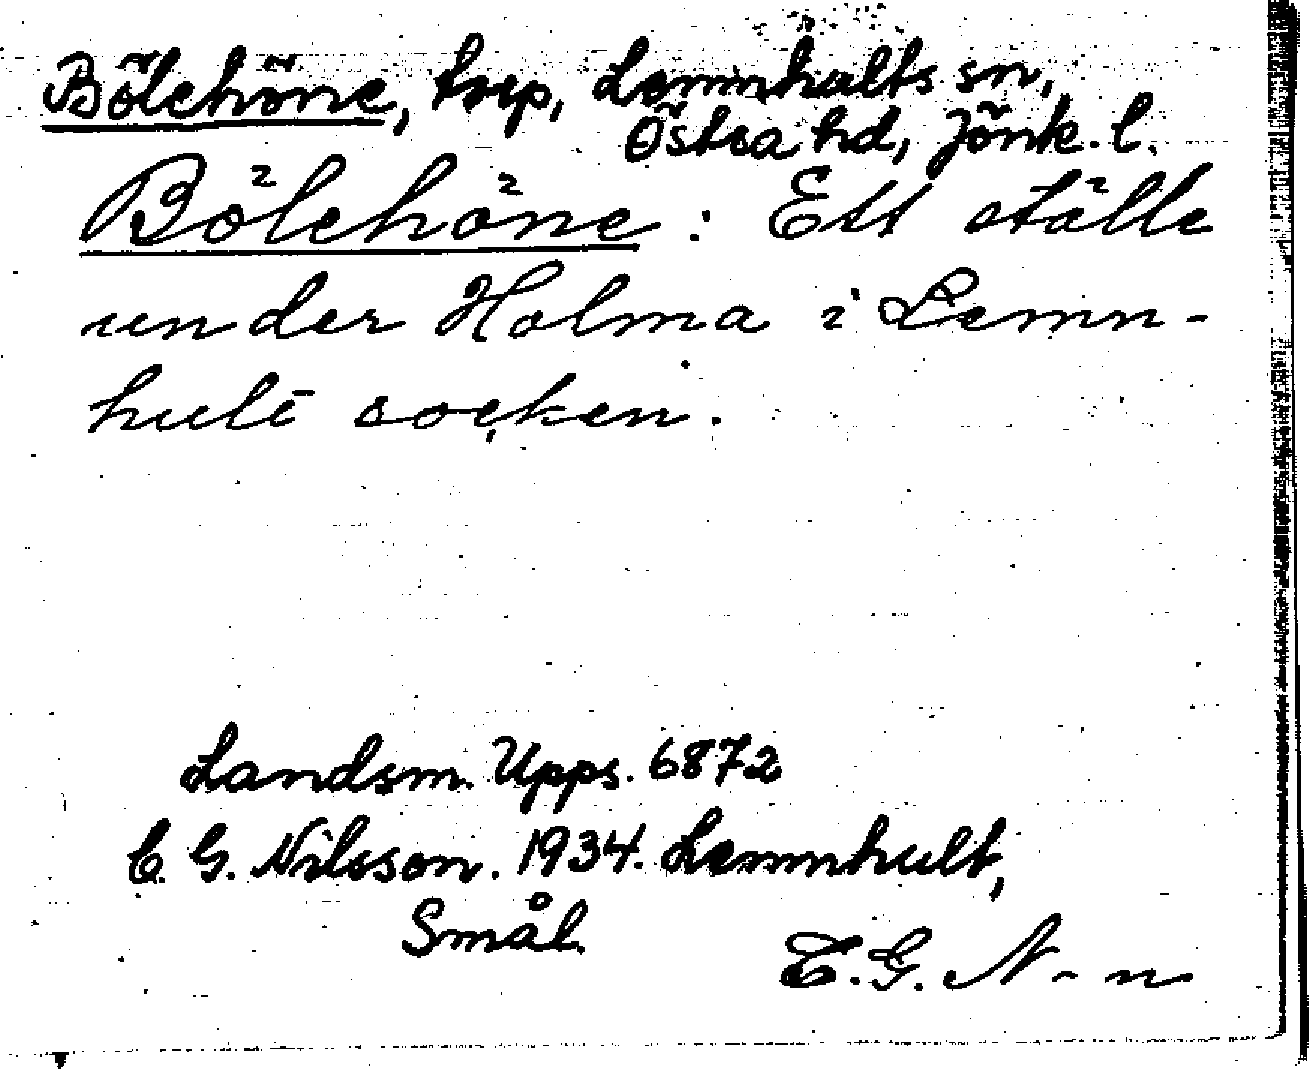 Bölehöne, torp, Lemnhults sn,
Östra hd, Jönk. l.
Bölehöne: Ett ställe
under Holma i Lemn-
hult socken.
Landsm. Upps. 6872
C. G. Nilsson. 1934. Lemnhult,
Smål.
C. G. N-n